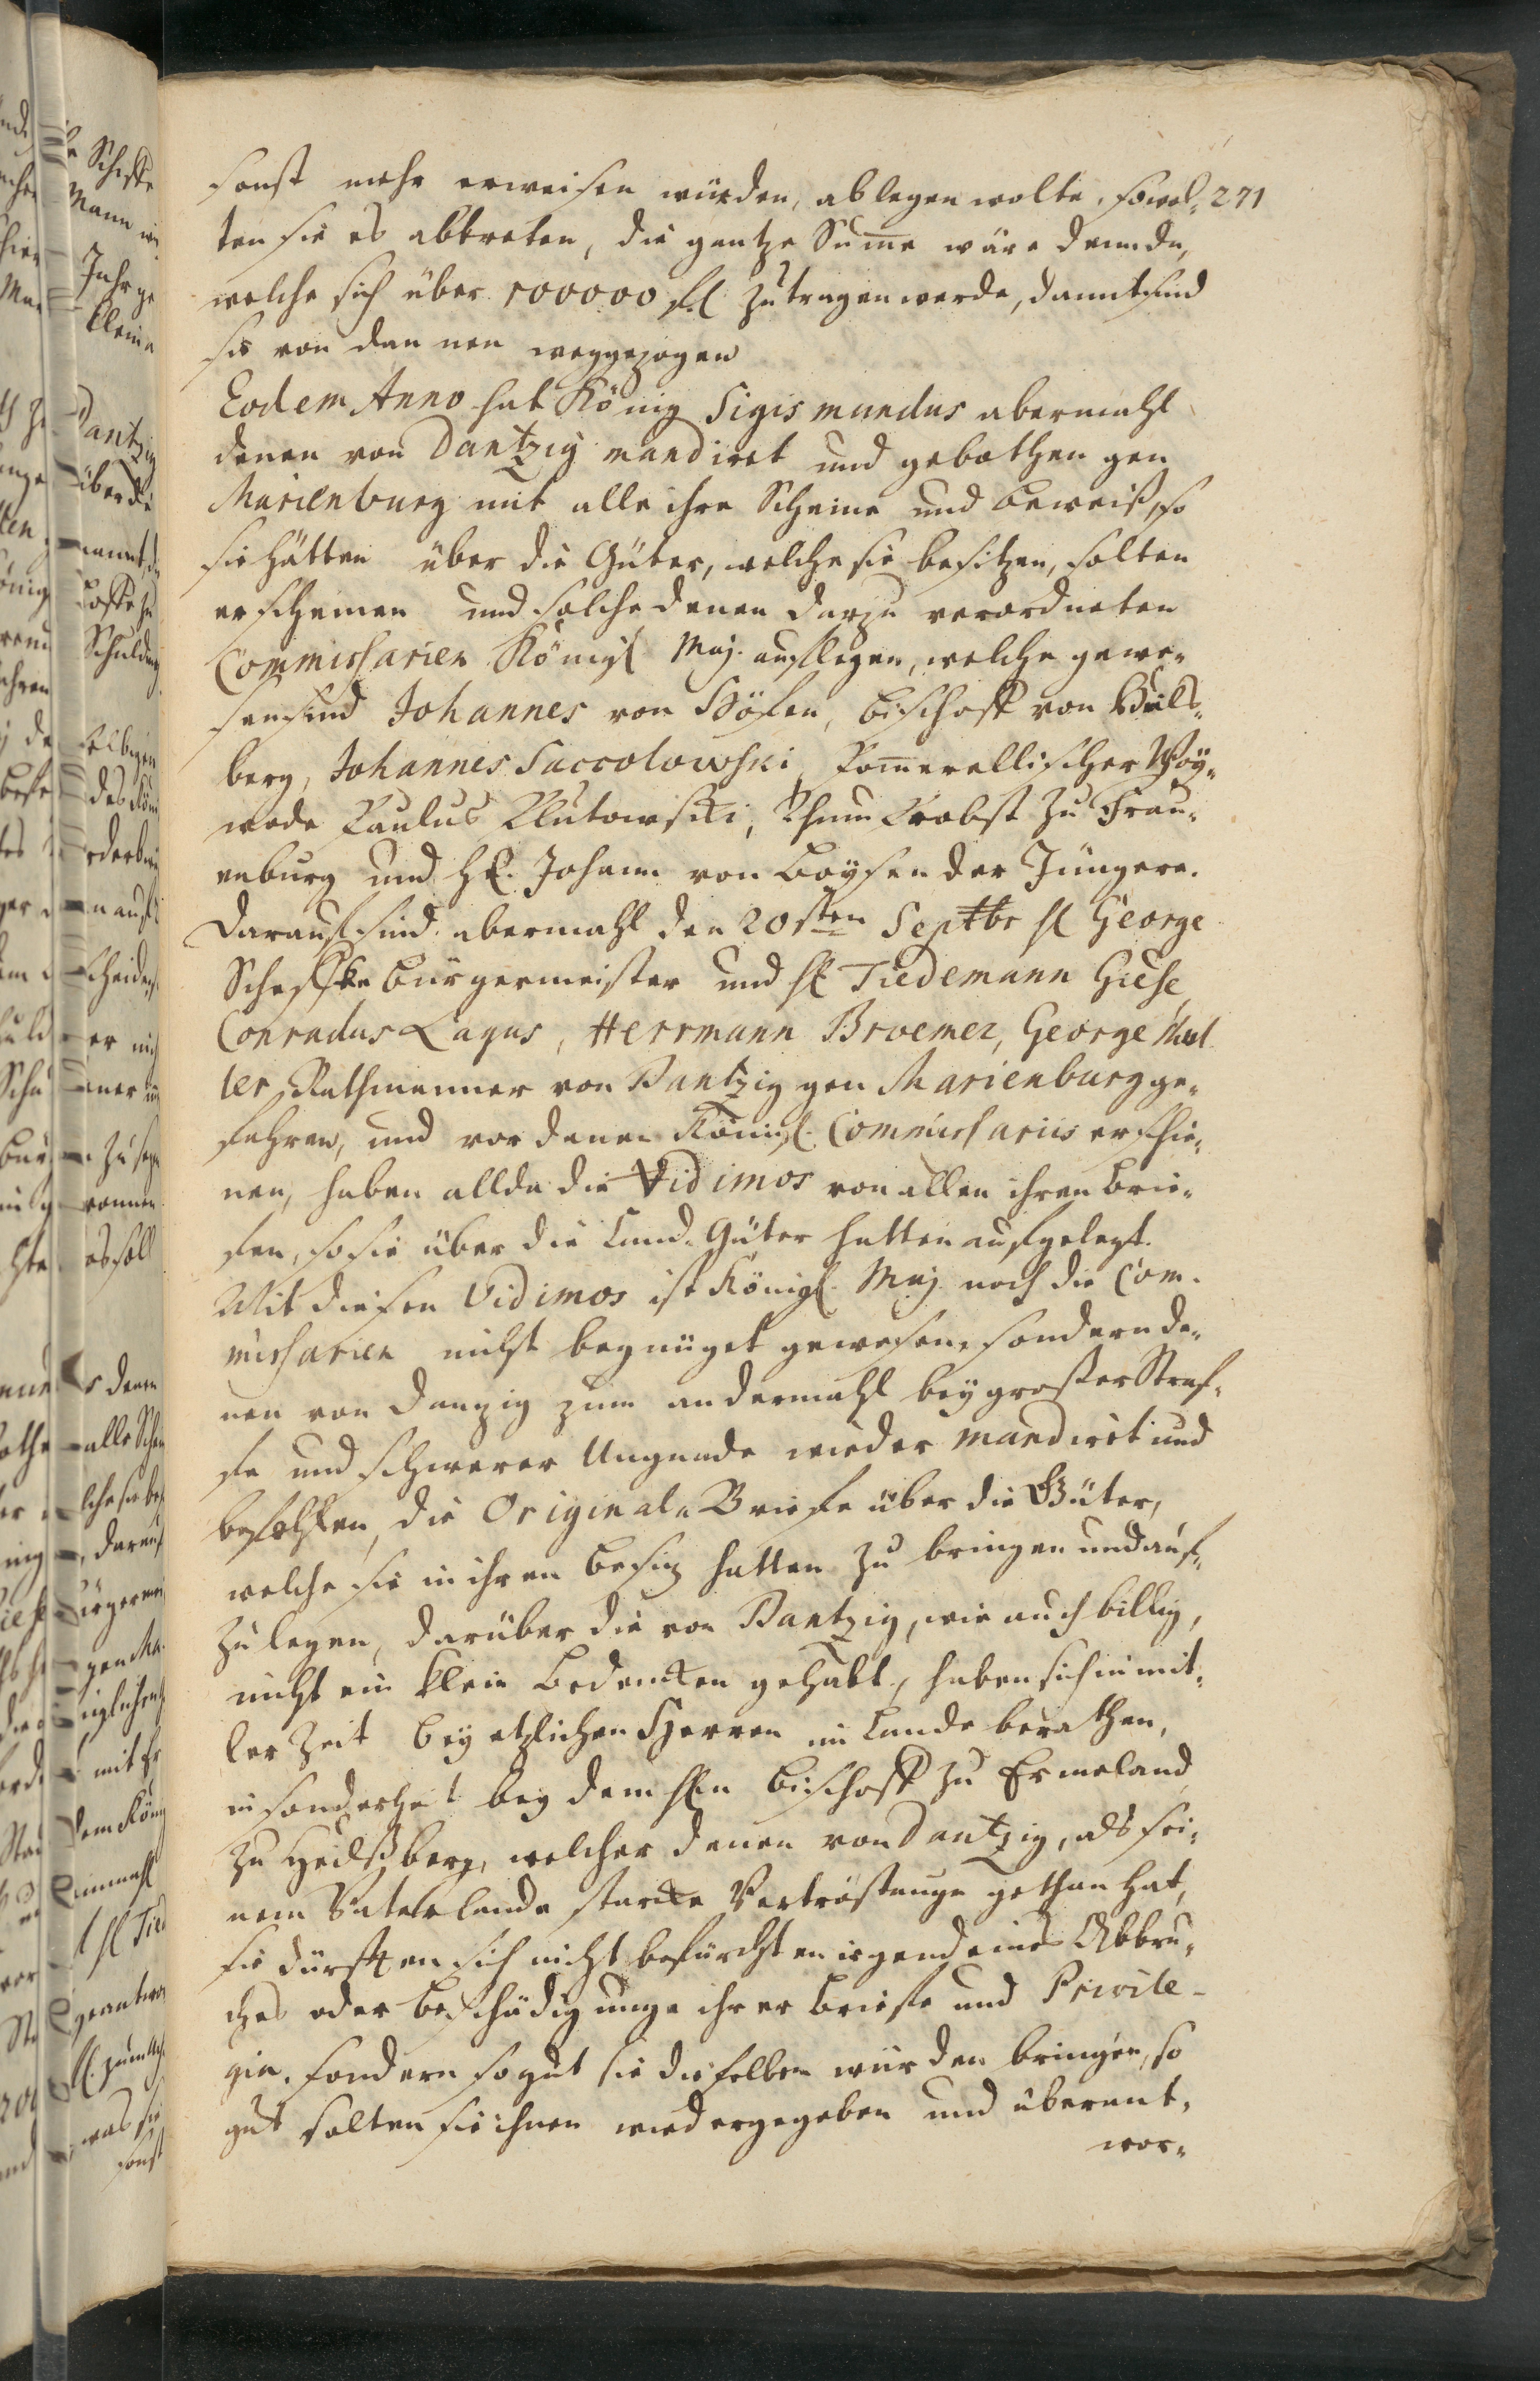 sonst mehr erweisen würden, ablegen wolte, so wol- 271
ten sie es abtreten, die gantze Sum̅e wäre denn da,
welche sich über 100000 fl. zutragen werde, damit sind
sie von dannen weggezogen
Eodem Anno hat König Sigismundus abermahl
denen von Dantzig mandiret und gebothen gen
Marienburg mit alle ihre Scheine und Beweiß, so
sie hätten über die Güter, welche sie besitzen, solten
erscheinen und solche denen darzu verordneten
Commissarien Königl. Maj. aufflegen, welche gewe-
sen sind Johannes von Höfen, Bischoff von Heils-
berg, Johannes Saccolowski, Pom̅erellischer Woy-
wode Paulus Plutowski, Thum Probst zu Frau-
enburg und H. Johann von Baysen der Jüngere.
Darauf sind abermahl den 20sten Septbr H George
Scheffke Bürgermeister und H Tiedemann Giese
Conradus Lagus, Herrmann Broemer, George Mel
ler Rathmanner von Dantzig gen Marienburg ge-
fahren, und vor denen Königl. Commissariis erschie-
nen, haben allda die Vidimos von allen ihren Brie-
fen, so sie über die Land-Güter hatten aufgelegt.
Mit diesen Vidimos ist Königl. Maj. noch die Com-
missarien nicht begnüget gewesen, sondern de-
nen von Danzig zum andermahl bey großer Straf-
fe und schwerer Ungnade wieder mandiret und
befohlen, die Original-Briefe über die Güter,
welche sie in ihren Besiz hatten zu bringen und auf-
zulegen, darüber die von Dantzig, wie auch billig,
nicht ein klein Bedencken gehabt, haben sich in mit-
ler Zeit bey etzlichen Herren im Lande berathen,
insonderheit bey dem H Bischoff zu Ermeland
zu Heilßberg, welcher denen von Dantzig, als sei-
nem Vaterlande starcke Vertröstunge gethan hat,
sie dürften sich nicht befürchten irgend eines Abbru-
ches oder Beschädigunge ihrer Briefe und Privile-
gia, sondern so gut sie dieselben würden bringen, so
gut solten sie ihnen wiedergegeben und überant-
wor-